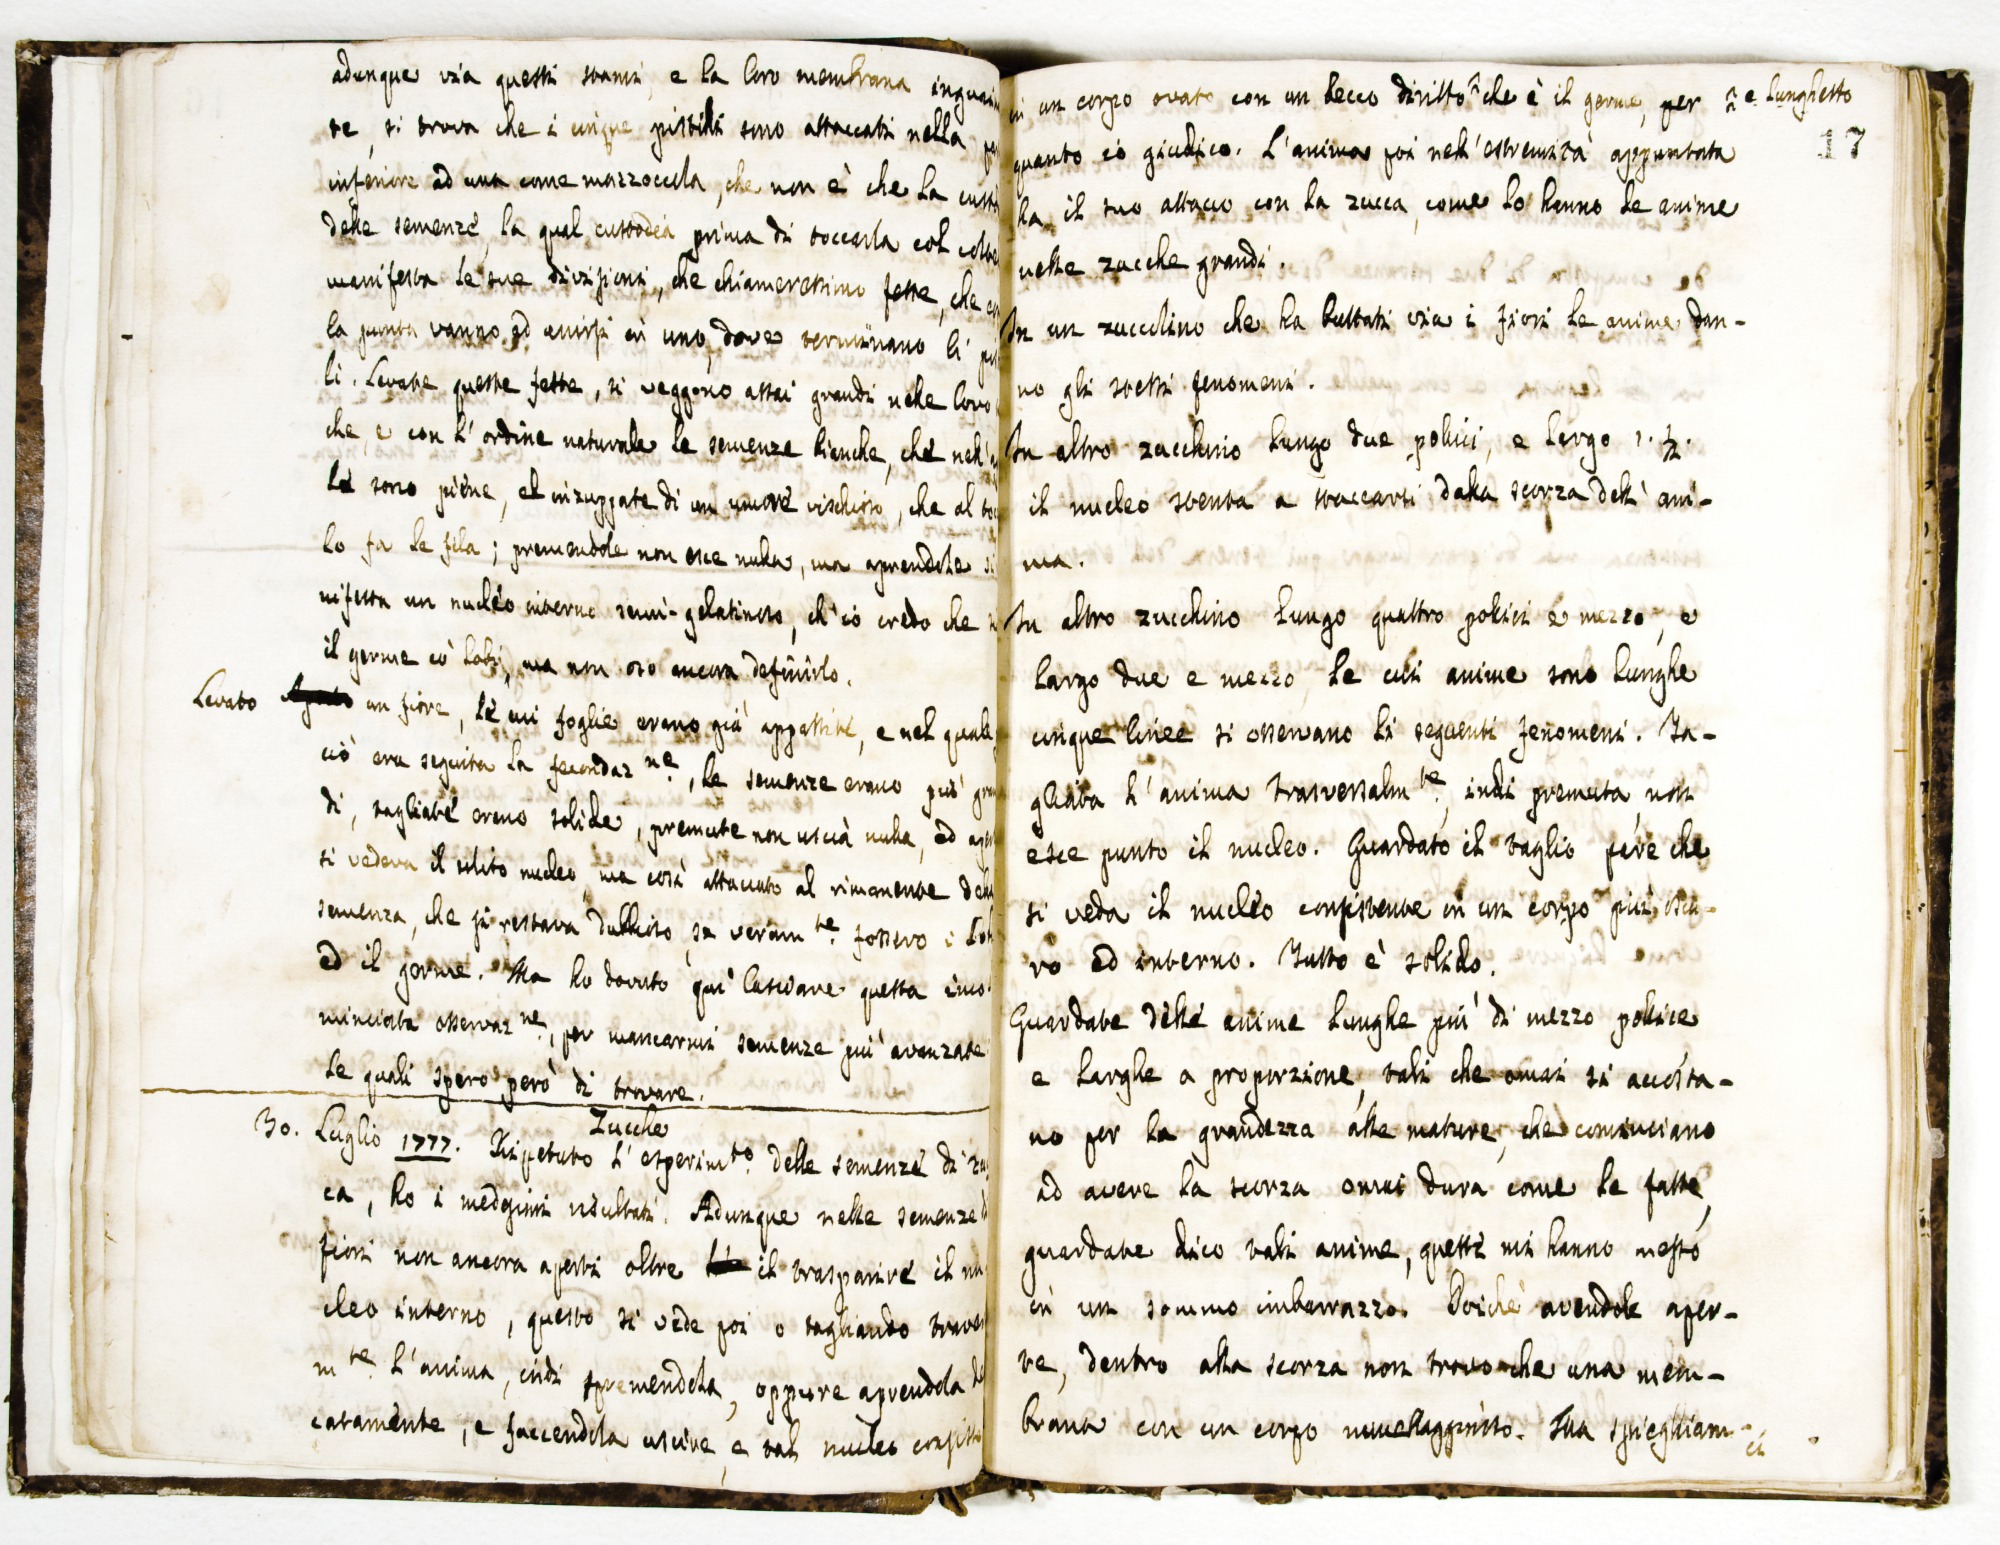 adunque via questi stami, e la loro membrana inguain
te, si trova che i cinque pistilli sono attaccati nella
inferiore ad una come mazzoccola, che non è che la custo
delle semenze, la qual custodia prima di toccarla col colte
manifesta le sue divisioni, che chiameressimo fette, che
la punta vanno ad unirsi in uno, dove terminano li pis
li. Levate queste fette, si veggono assai grandi nelle loro
che, e con l'ordine naturale le semenze bianche, che nel
le sono piene, ed inzuppate di un umore vischioso, che al
lo fa le fila; premendole non esce nulla, ma aprendole si
nifesta un nucleo interno semi-gelatinoso, ch'io credo che
il germe co' lobi, ma non oso ancora definirlo.
Levato un fiore, le cui foglie erano già appassite, e nel quale
ciò era seguita la fecondaz.ne, le semenze erano più gran
di, tagliate erano solide, premute non uscia nulla, ed
si vedeva il solito nucleo, ma così attaccato al rimanente della
semenza, che si restava dubbioso, se veram.te fossero i lobi
ed il germe. Ma ho dovuto qui lasciare questa inco
minciata osservaz.ne, per mancarmi semenze più avanzate
le quali spero però di trovare.
Zucche
30. Luglio 1777. Ripetuto l'esperim.to delle semenze di zuc
ca, ho i medesimi risultati. Adunque nelle semenze di
fiori non ancora aperti oltre il trasparire il nu
cleo interno, questo si vede poi o tagliando trasver
m.te l'anima, indi spremendola, oppure aprendola de
catamente, e faccendola uscire, e tal nucleo consiste
in un corpo ovato con un becco diritto ^ che è il germe, per ^ e lunghetto
17
quanto io giudico. L'anima poi nell'estremità appuntata
ha il suo attacco con la zucca, come lo hanno le anime
nelle zucche grandi.
In un zuccolino che ha buttati via i fiori le anime dan-
no gli stessi fenomeni.
In altro zucchino lungo due pollici, e largo 1. 1/2.
il nucleo stenta a staccarsi dalla scorza dell'ani-
ma.
In altro zucchino lungo quattro pollici e mezzo, e
largo due e mezzo, le cui anime sono lunghe
cinque linee si osservano li seguenti fenomeni. Ta-
gliata l'anima trasversalm.te, indi premuta, non
esce punto il nucleo. Guardato il taglio pare che
si veda il nucleo consistente in un corpo più oscu-
ro ed interno. Tutto è solido.
Guardate delle anime lunghe più di mezzo pollice
e larghe a proporzione, tali che omai si accosta-
no per la grandezza alle mature, che cominciano
ad avere la scorza omai dura come le fatte,
guardate dico tali anime, queste mi hanno messo
in un sommo imbarrazzo. Poichè avendole aper-
te, dentro alla scorza non trovo che una mem-
brana con un corpo mucellagginoso. Ma spieghiam-
ci